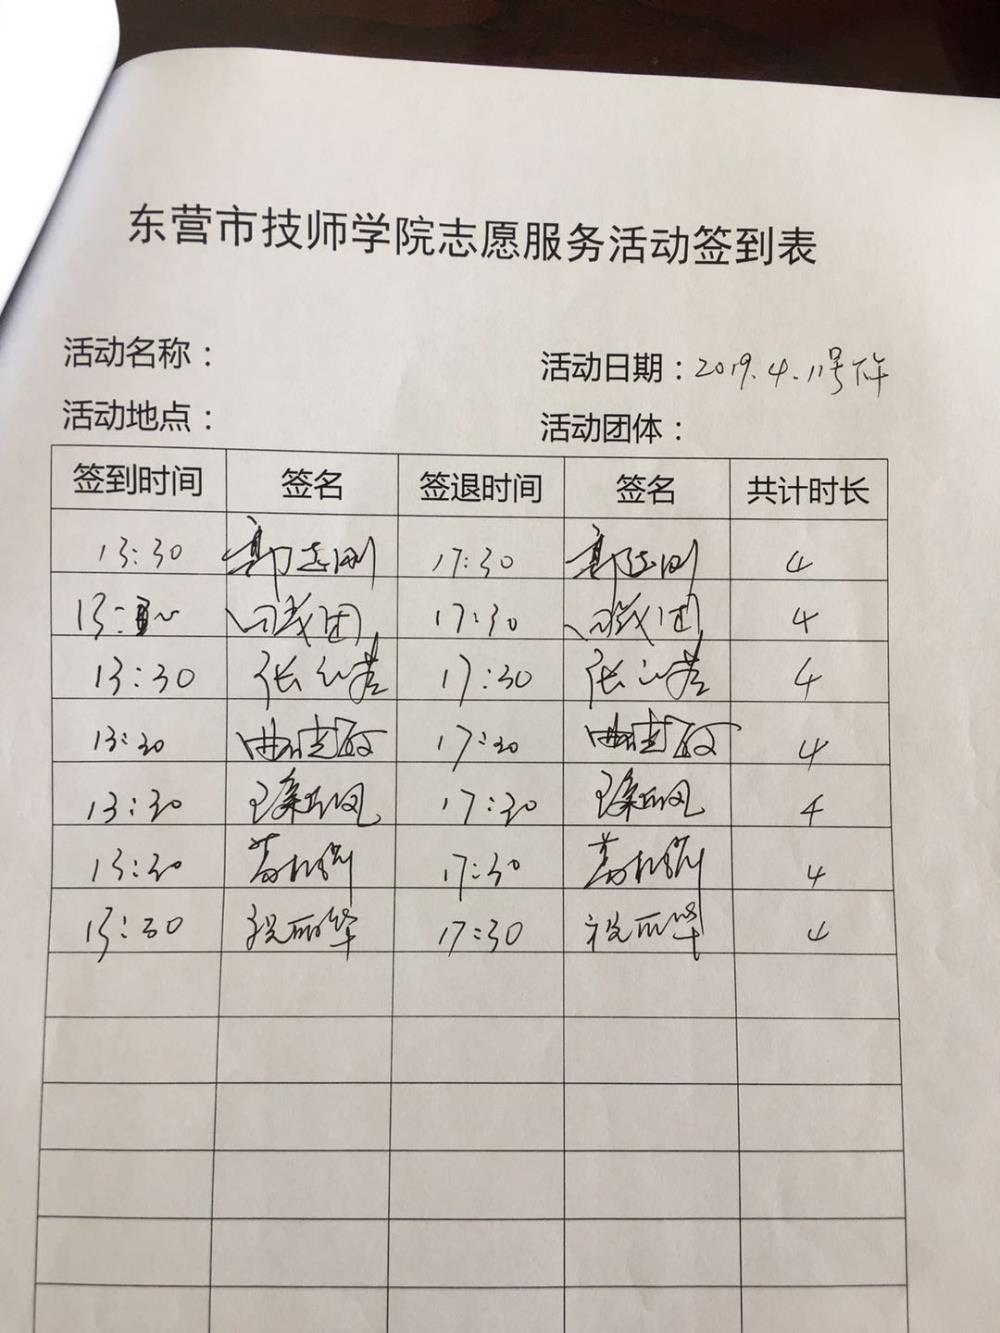 东营市技师学院志愿服务活动签到表
活动名称： 活动日期：2019.4.11号下午
活动地点： 活动团体：
签到时间 签名 签退时间 签名 共计时长
13:30 郭志刚 17:30 郭志刚 4
13:30 17:30 4
13:30 张 17:30 张 4
13:30 曲 17:30 曲 4
13:30 17:30 4
13:30 17:30 4
13:30 祝丽华 17:30 祝丽华 4